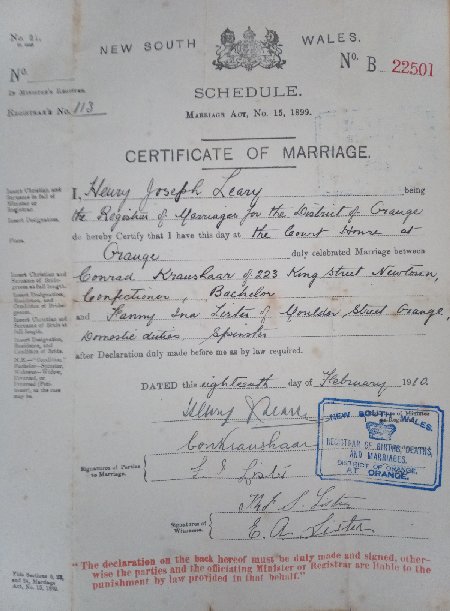 No. 21.
NEW SOUTH WALES.
No. B 22501
No.
In Minister's Register.
Registrar's No. 113
SCHEDULE.
Marriage Act, No. 15, 1899.
CERTIFICATE OF MARRIAGE.
Insert Christian and
Surname in full of
Minister or
Registrar.
I, Henry Joseph Leary being
Insert Designation.
the Registrar of Marriages for the District of Orange
Place.
do hereby Certify that I have this day at the Court House at
Orange duly celebrated Marriage between
Insert Christian and
Surname of Bride-
groom at full length.
Conrad Kraushaar of 223 King Street Newtown,
Insert Designation,
Residence, and
Condition of Bridegroom.
Confectioner, Bachelor
Insert Christian and
Surname of Bride at
full length.
and Fanny Ina Lister of Moulder Street Orange,
Insert Designation,
Residence, and
Condition of Bride.
Domestic duties Spinster
N.B.—"Condition,"
Bachelor, Spinster,
Widower, Widow,
Divorced, or
Divorcée (Petitioner), as the case
may be.
after Declaration duly made before me as by law required.
DATED this eighteenth day of February 1910.
Henry J Leary
Signature of Minister
or Registrar.
NEW SOUTH WALES.
REGISTRAR OF BIRTHS, DEATHS,
AND MARRIAGES.
DISTRICT OF ORANGE.
AT ORANGE.
Signatures of Parties
to Marriage.
Con Kraushaar
F I Lister
Signatures of
Witnesses.
S Lister
E. A. Lister
Vide Sections
Marriage
Act, No. 15, 1899.
"The declaration on the back hereof must be duly made and signed, other-
wise the parties and the officiating Minister or Registrar are liable to the
punishment by law provided in that behalf."